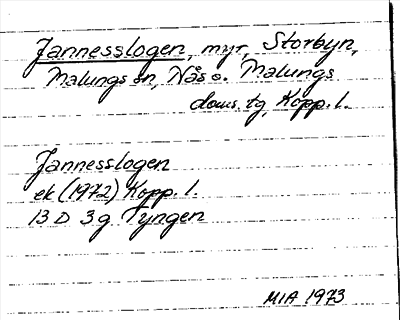 Jannesslogen, myr, Storbyn,
Malungs sn, Nås o. Malungs
doms. tg, Kopp. l.
Jannesslogen
ek (1972) Kopp. l.
13 D 3g Tyngen
MIA 1973